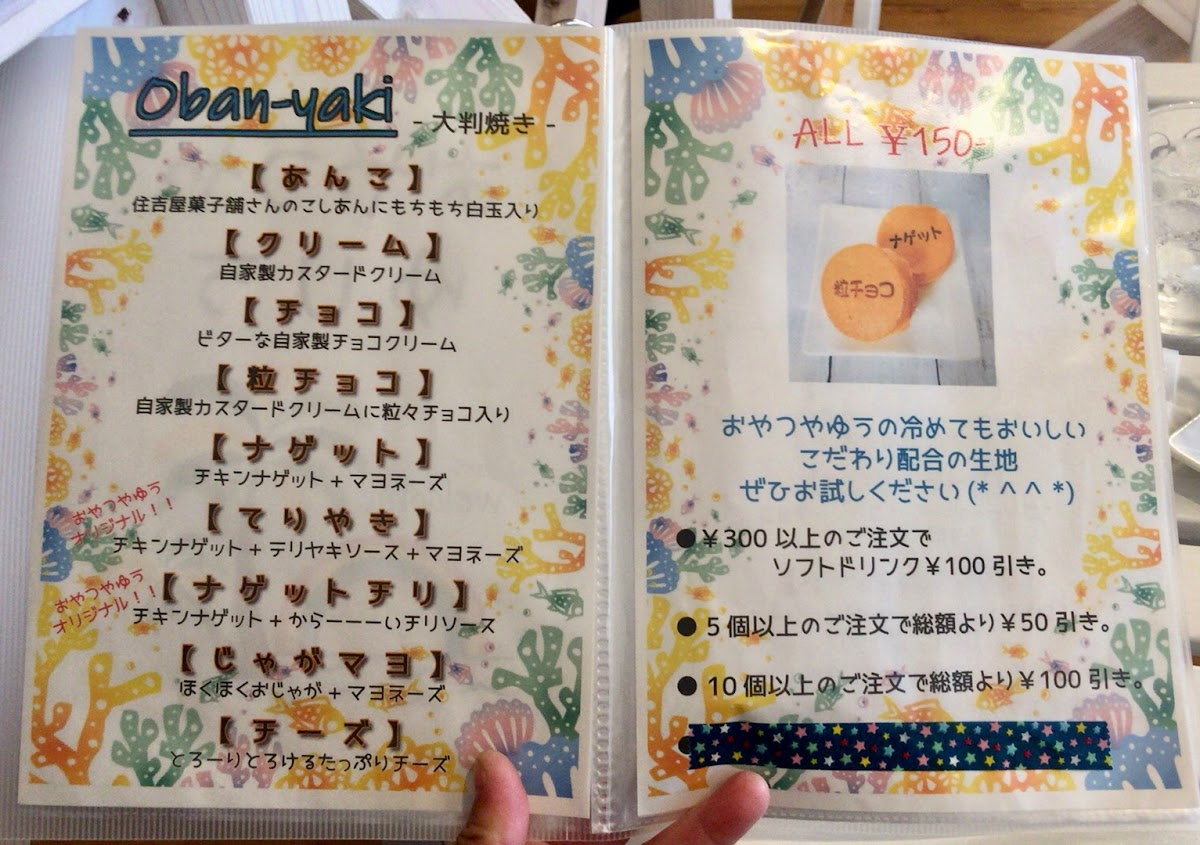 Oban-yaki - 大判焼き -
【あんこ】
住吉屋菓子舗さんのこしあんにもちもち白玉入り
【クリーム】
自家製カスタードクリーム
【チョコ】
ビターな自家製チョコクリーム
【粒チョコ】
自家製カスタードクリームに粒々チョコ入り
【ナゲット】
チキンナゲット+マヨネーズ
おやつやゆう
オリジナル！！
【てりやき】
チキンナゲット+テリヤキソース+マヨネーズ
おやつやゆう
オリジナル！！
【ナゲットチリ】
チキンナゲット+からーーーいチリソース
【じゃがマヨ】
ほくほくおじゃが+マヨネーズ
【チーズ】
とろーりとろけるたっぷりチーズ
ALL ¥150-
ナゲット
粒チョコ
おやつやゆうの冷めてもおいしい
こだわり配合の生地
ぜひお試しください(*^^*)
●¥300以上のご注文で
ソフトドリンク¥100引き。
●5個以上のご注文で総額より¥50引き。
●10個以上のご注文で総額より¥100引き。